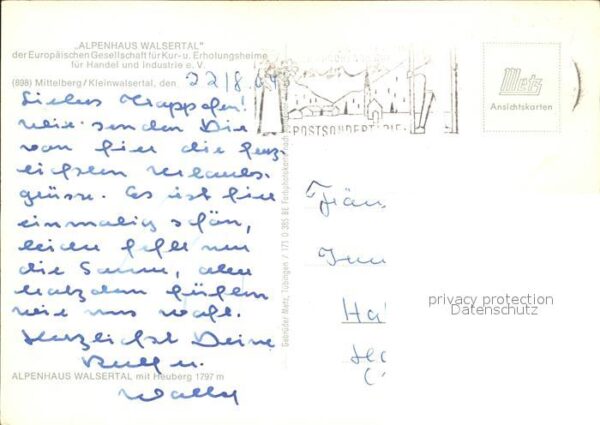 „ALPENHAUS WALSERTAL"
der Europäischen Gesellschaft für Kur- u. Erholungsheime
für Handel und Industrie e. V.
(898) Mittelberg/Kleinwalsertal, den 22/8.
Liebes
Wir senden Dir
von hier die herz-
lichsten Urlaubs-
grüsse. Es ist hier
einmalig schön,
leider fehlt nun
die Sonne, aber
trotzdem fühlen
wir uns wohl.
Herzlichst Deine
u.
Wally
ALPENHAUS WALSERTAL mit Heuberg 1797 m
Gebrüder Metz, Tübingen
POSTSONDERTARIF
Metz
Ansichtskarten
Fräu
Ha
privacy protection
Datenschutz